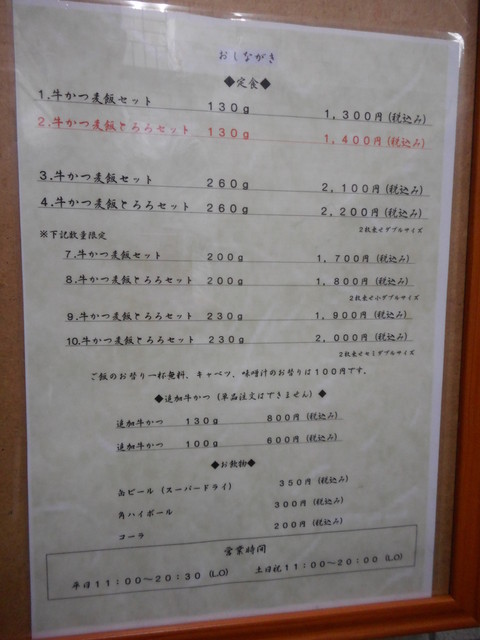 おしながき
◆定食◆
1.牛かつ麦飯セット 130g 1,300円(税込み)
2.牛かつ麦飯とろろセット 130g 1,400円(税込み)
3.牛かつ麦飯セット 260g 2,100円(税込み)
4.牛かつ麦飯とろろセット 260g 2,200円(税込み)
2枚乗せダブルサイズ
※下記数量限定
7.牛かつ麦飯セット 200g 1,700円(税込み)
8.牛かつ麦飯とろろセット 200g 1,800円(税込み)
2枚乗せ小ダブルサイズ
9.牛かつ麦飯とろろセット 230g 1,900円(税込み)
10.牛かつ麦飯とろろセット 230g 2,000円(税込み)
2枚乗せセミダブルサイズ
ご飯のお替り一杯無料、キャベツ、味噌汁のお替りは100円です。
◆追加牛かつ(単品注文はできません)◆
追加牛かつ 130g 800円(税込み)
追加牛かつ 100g 600円(税込み)
◆お飲物◆
缶ビール(スーパードライ) 350円(税込み)
角ハイボール 300円(税込み)
コーラ 200円(税込み)
営業時間
平日11:00~20:30(LO) 土日祝11:00~20:00(LO)